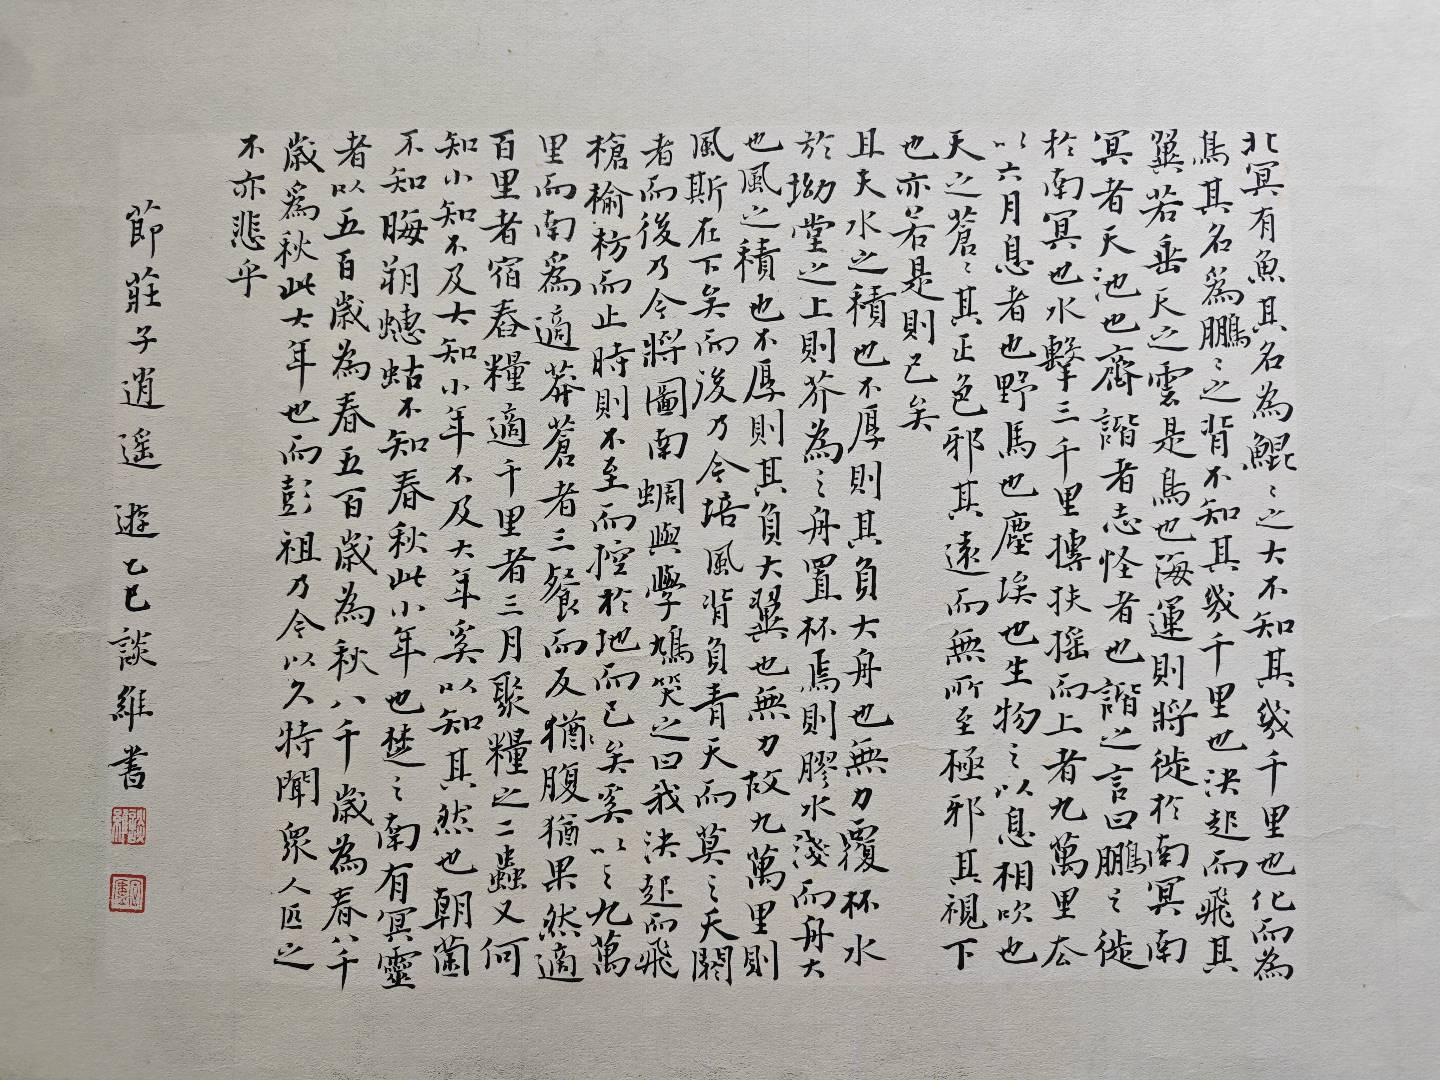 北冥有魚其名為鯤〻之大不知其幾千里也化而為
鳥其名爲鵬〻之背不知其幾千里也決起而飛其
翼若垂天之雲是鳥也海運則將徙於南冥南
冥者天池也齊諧者志怪者也諧之言曰鵬之徙
於南冥也水擊三千里摶扶搖而上者九萬里去
以六月息者也野馬也塵埃也生物之以息相吹也
天之蒼〻其正色邪其遠而無所至極邪其視下
也亦若是則已矣
且夫水之積也不厚則其負大舟也無力覆杯水
於坳堂之上則芥為之舟置杯焉則膠水淺而舟大
也風之積也不厚則其負大翼也無力故九萬里則
風斯在下矣而後乃今培風背負青天而莫之夭閼
者而後乃今將圖南蜩與學鳩笑之曰我決起而飛
槍榆枋而止時則不至而控於地而已矣奚以之九萬
里而南爲適莽蒼者三餐而反猶腹猶果然適
百里者宿舂糧適千里者三月聚糧之二蟲又何
知小知不及大知小年不及大年奚以知其然也朝菌
不知晦朔蟪蛄不知春秋此小年也楚之南有冥靈
者以五百歲為春五百歲為秋八千歲為春八千
歲爲秋此大年也而彭祖乃今以久特聞眾人匹之
不亦悲乎
節莊子逍遥遊乙巳談維書